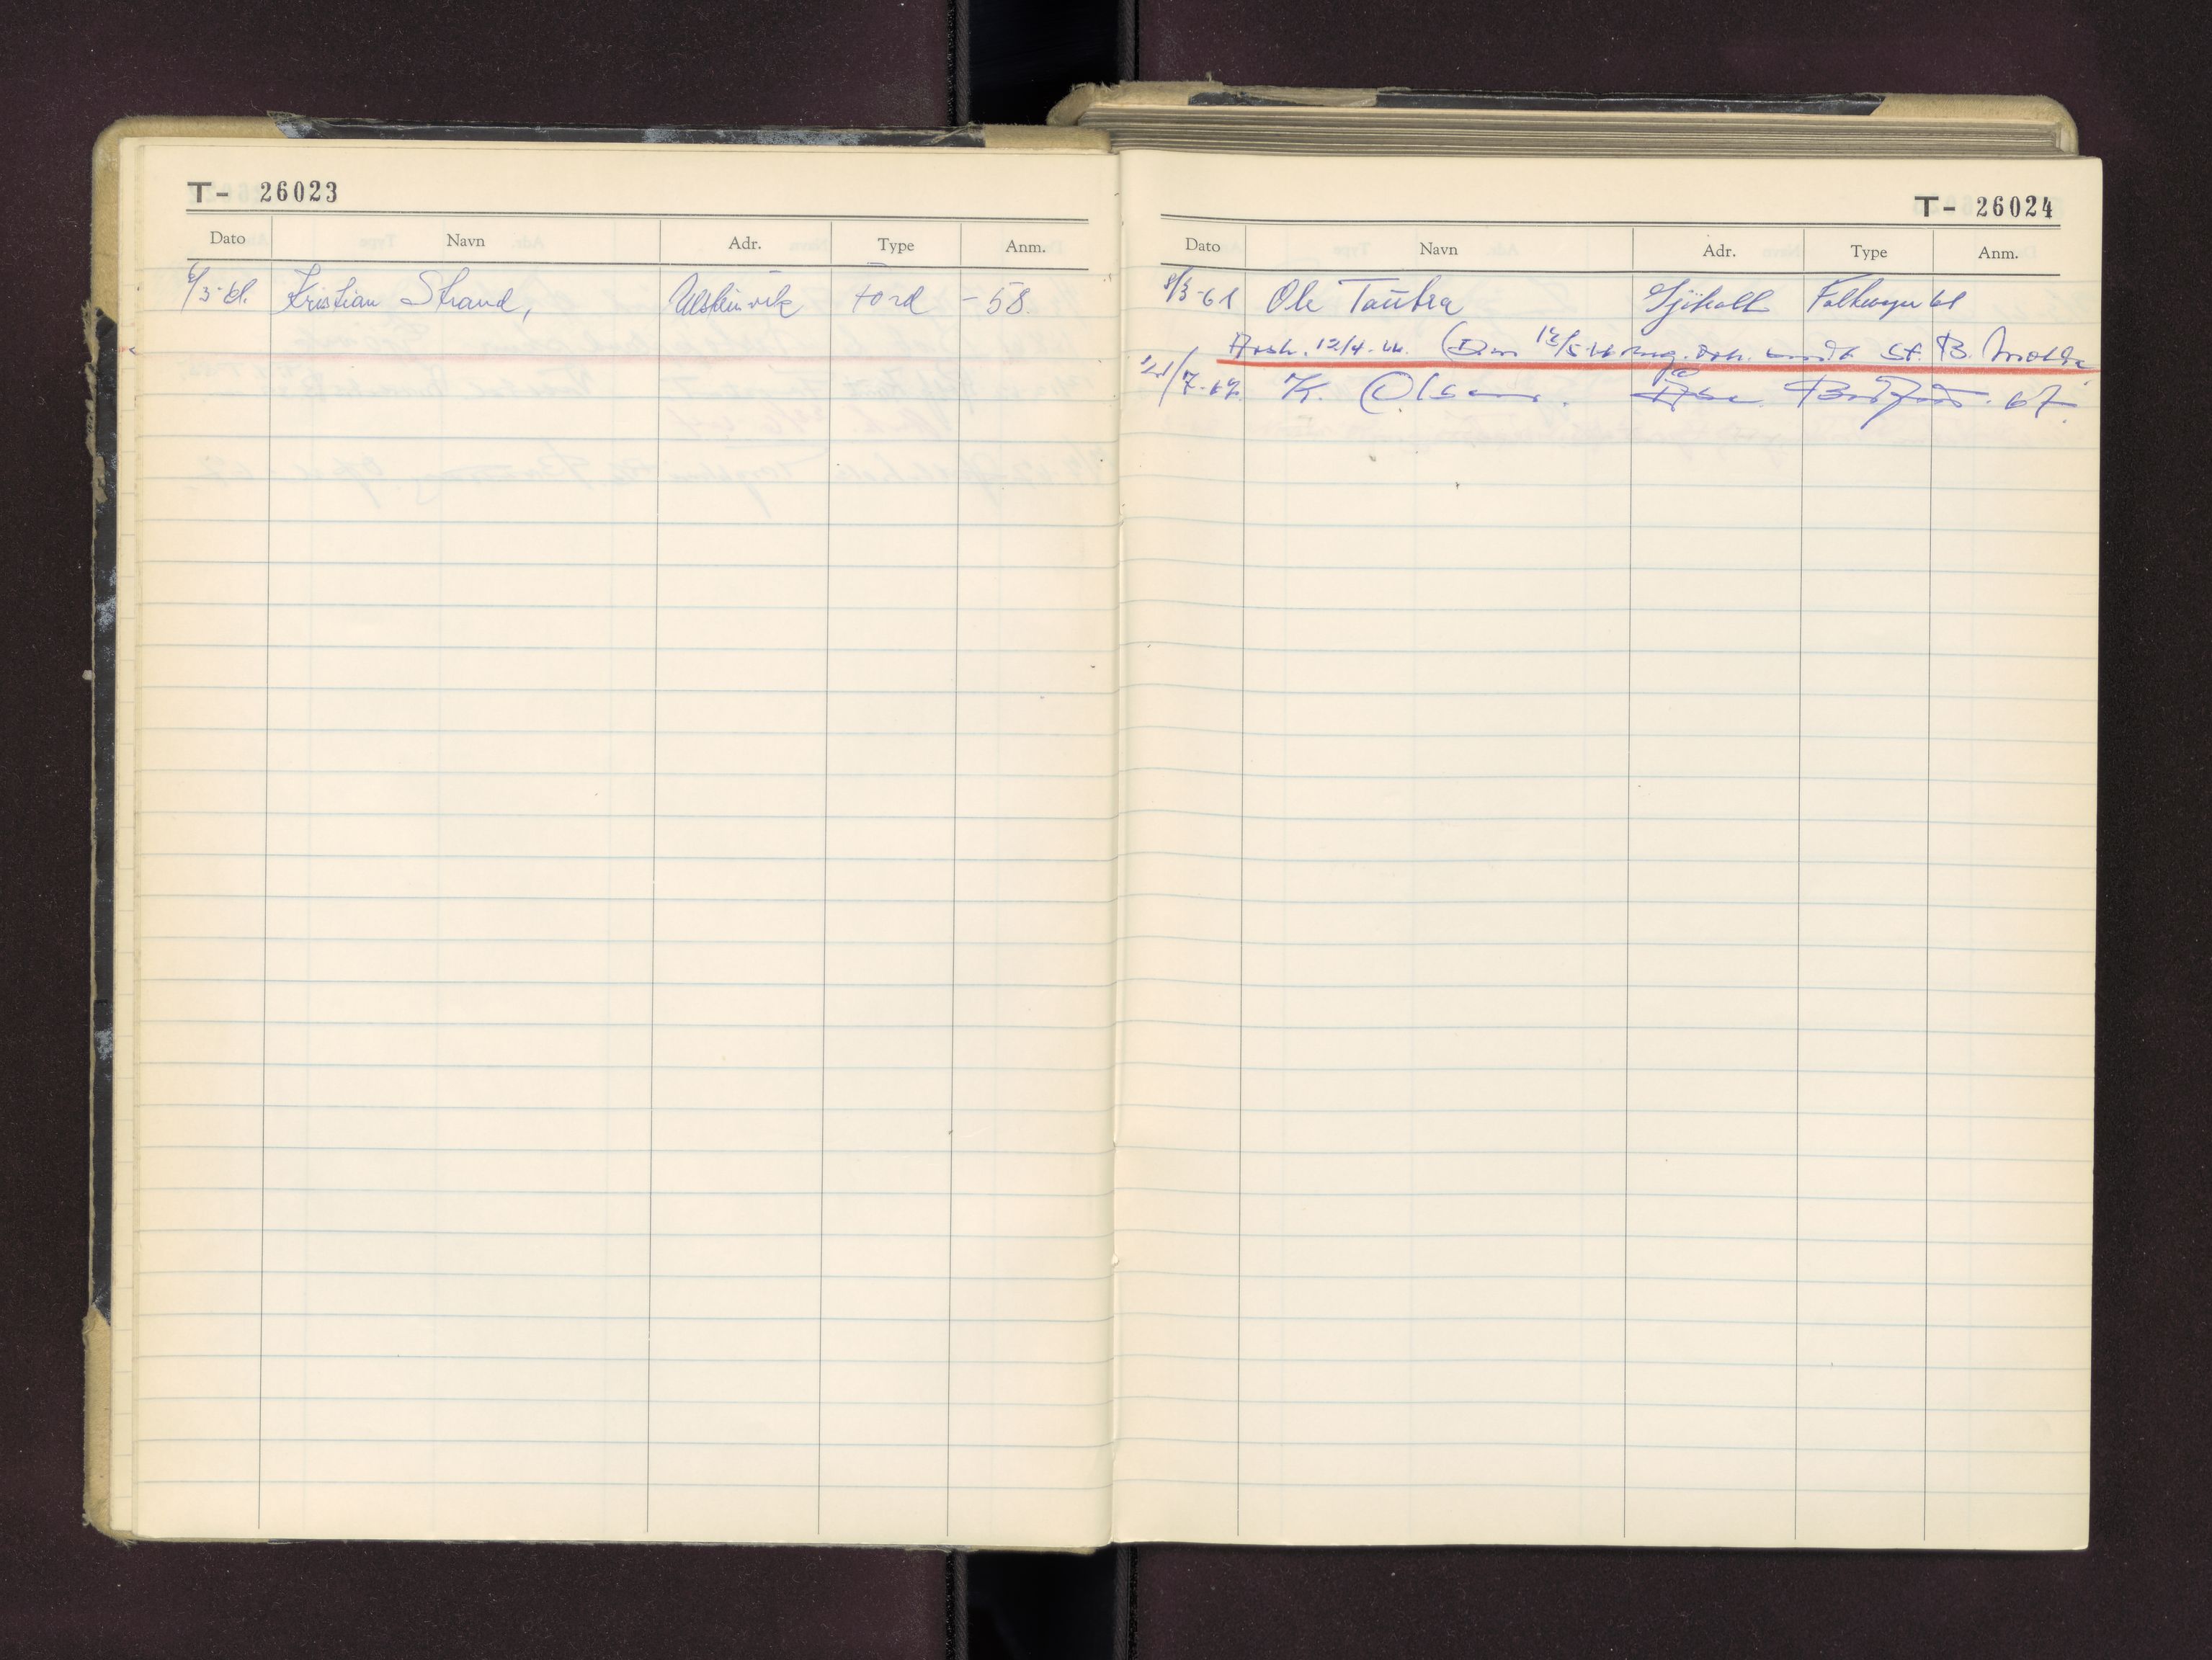 T- 26023
Dato Navn Adr. Type Anm.
6/3-61. Kristian Strand, Ulsteinvik Ford -58.
T- 26024
Dato Navn Adr. Type Anm.
8/3-61 Ole Tautra Sjøholt Folkevogn 61
Avsk. 12/4-66. (Den 13/5-66 St. B. Molde
/7-67. K. Olsen. Bedford. 67.